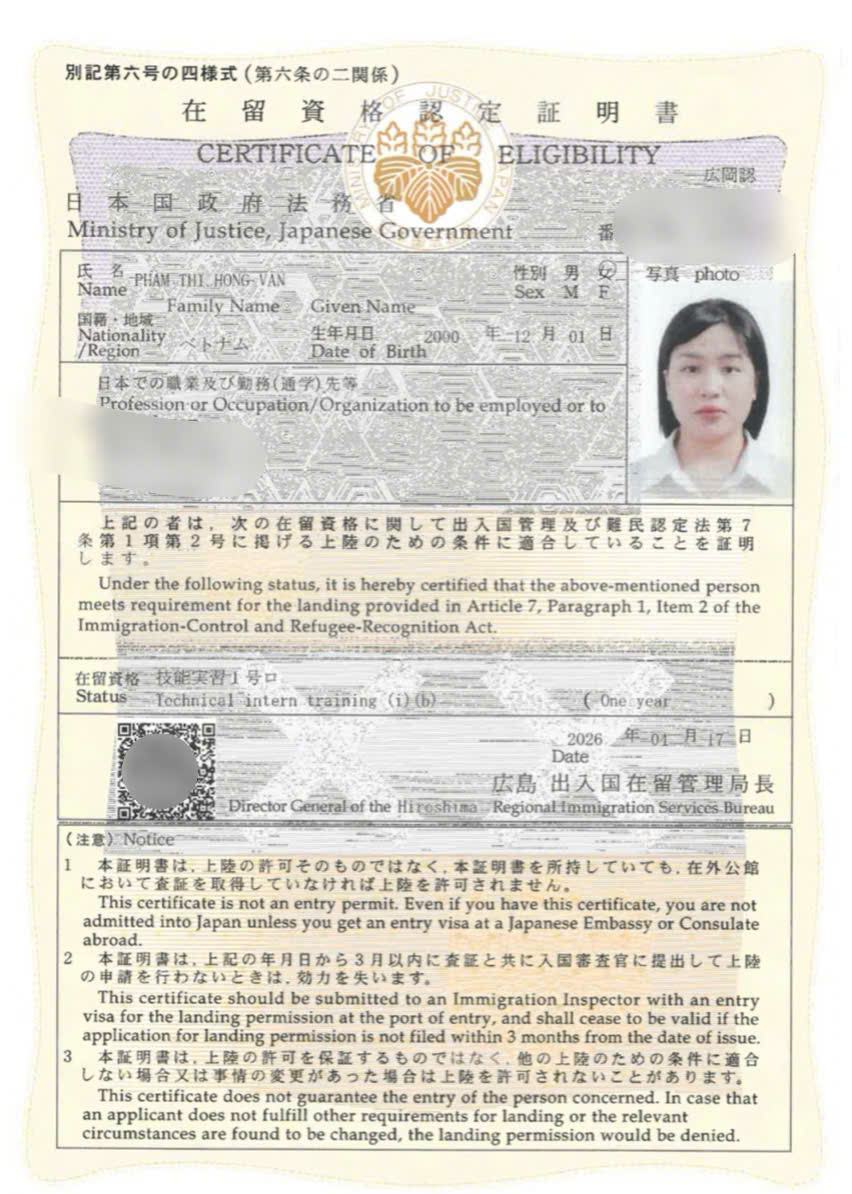 別記第六号の四様式(第六条の二関係)
在留資格認定証明書
MINISTRY OF JUSTICE JAPAN
CERTIFICATE OF ELIGIBILITY
広岡認
日本国政府法務省
Ministry of Justice, Japanese Government
番
氏名 PHAM THI HONG VAN 性別 男 女 写真 photo
Name Family Name Given Name Sex M F
国籍・地域 生年月日 2000 年 12 月 01 日
Nationality ベトナム Date of Birth
/Region
日本での職業及び勤務(通学)先等
Profession or Occupation/Organization to be employed or to
上記の者は,次の在留資格に関して出入国管理及び難民認定法第7
条第1項第2号に掲げる上陸のための条件に適合していることを証明
します。
Under the following status, it is hereby certified that the above-mentioned person
meets requirement for the landing provided in Article 7, Paragraph 1, Item 2 of the
Immigration-Control and Refugee-Recognition Act.
在留資格 技能実習1号ロ
Status Technical intern training (i)(b) ( One year )
2026 年 01 月 17 日
Date
広島 出入国在留管理局長
Director General of the Hiroshima Regional Immigration Services Bureau
(注意) Notice
1 本証明書は,上陸の許可そのものではなく,本証明書を所持していても,在外公館
において査証を取得していなければ上陸を許可されません。
This certificate is not an entry permit. Even if you have this certificate, you are not
admitted into Japan unless you get an entry visa at a Japanese Embassy or Consulate
abroad.
2 本証明書は,上記の年月日から3月以内に査証と共に入国審査官に提出して上陸
の申請を行わないときは,効力を失います。
This certificate should be submitted to an Immigration Inspector with an entry
visa for the landing permission at the port of entry, and shall cease to be valid if the
application for landing permission is not filed within 3 months from the date of issue.
3 本証明書は,上陸の許可を保証するものではなく,他の上陸のための条件に適合
しない場合又は事情の変更があった場合は上陸を許可されないことがあります。
This certificate does not guarantee the entry of the person concerned. In case that
an applicant does not fulfill other requirements for landing or the relevant
circumstances are found to be changed, the landing permission would be denied.